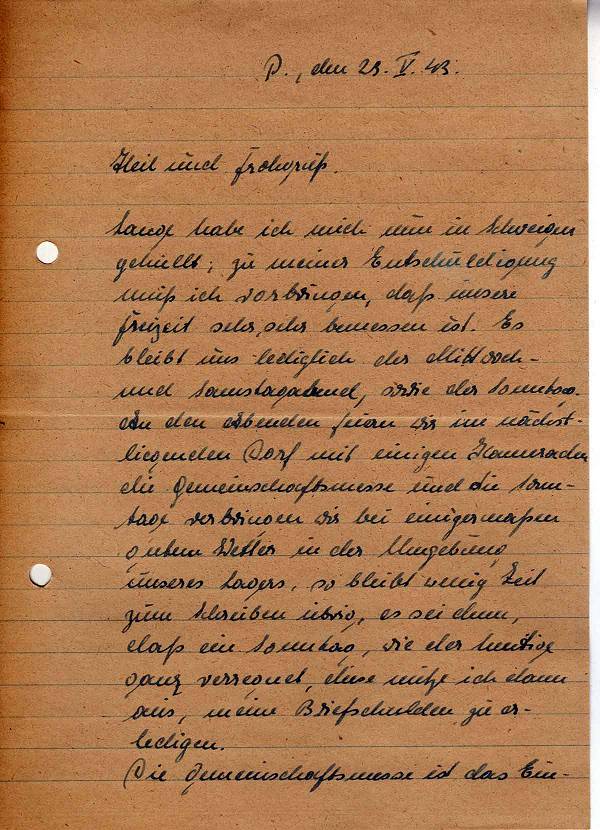 P., den 23. V. 43.
Heil und Frohgruß.
Lange habe ich mich nun in Schweigen
gehüllt; zu meiner Entschuldigung
muß ich vorbringen, daß unsere
Freizeit sehr, sehr bemessen ist. Es
bleibt uns lediglich der Mittwoch-
und Samstagabend, sowie der Sonntag.
An den Abenden feiern wir im nächst-
liegenden Dorf mit einigen Kameraden
die Gemeinschaftsmesse und die Sonn-
tage verbringen wir bei einigermaßen
gutem Wetter in der Umgebung
unseres Lagers, so bleibt wenig Zeit
zum Schreiben übrig, es sei denn,
daß ein Sonntag, wie der heutige
ganz verregnet, diese nütze ich dann
aus, meine Briefschulden zu er-
ledigen.
Die Gemeinschaftsmesse ist das Ein-